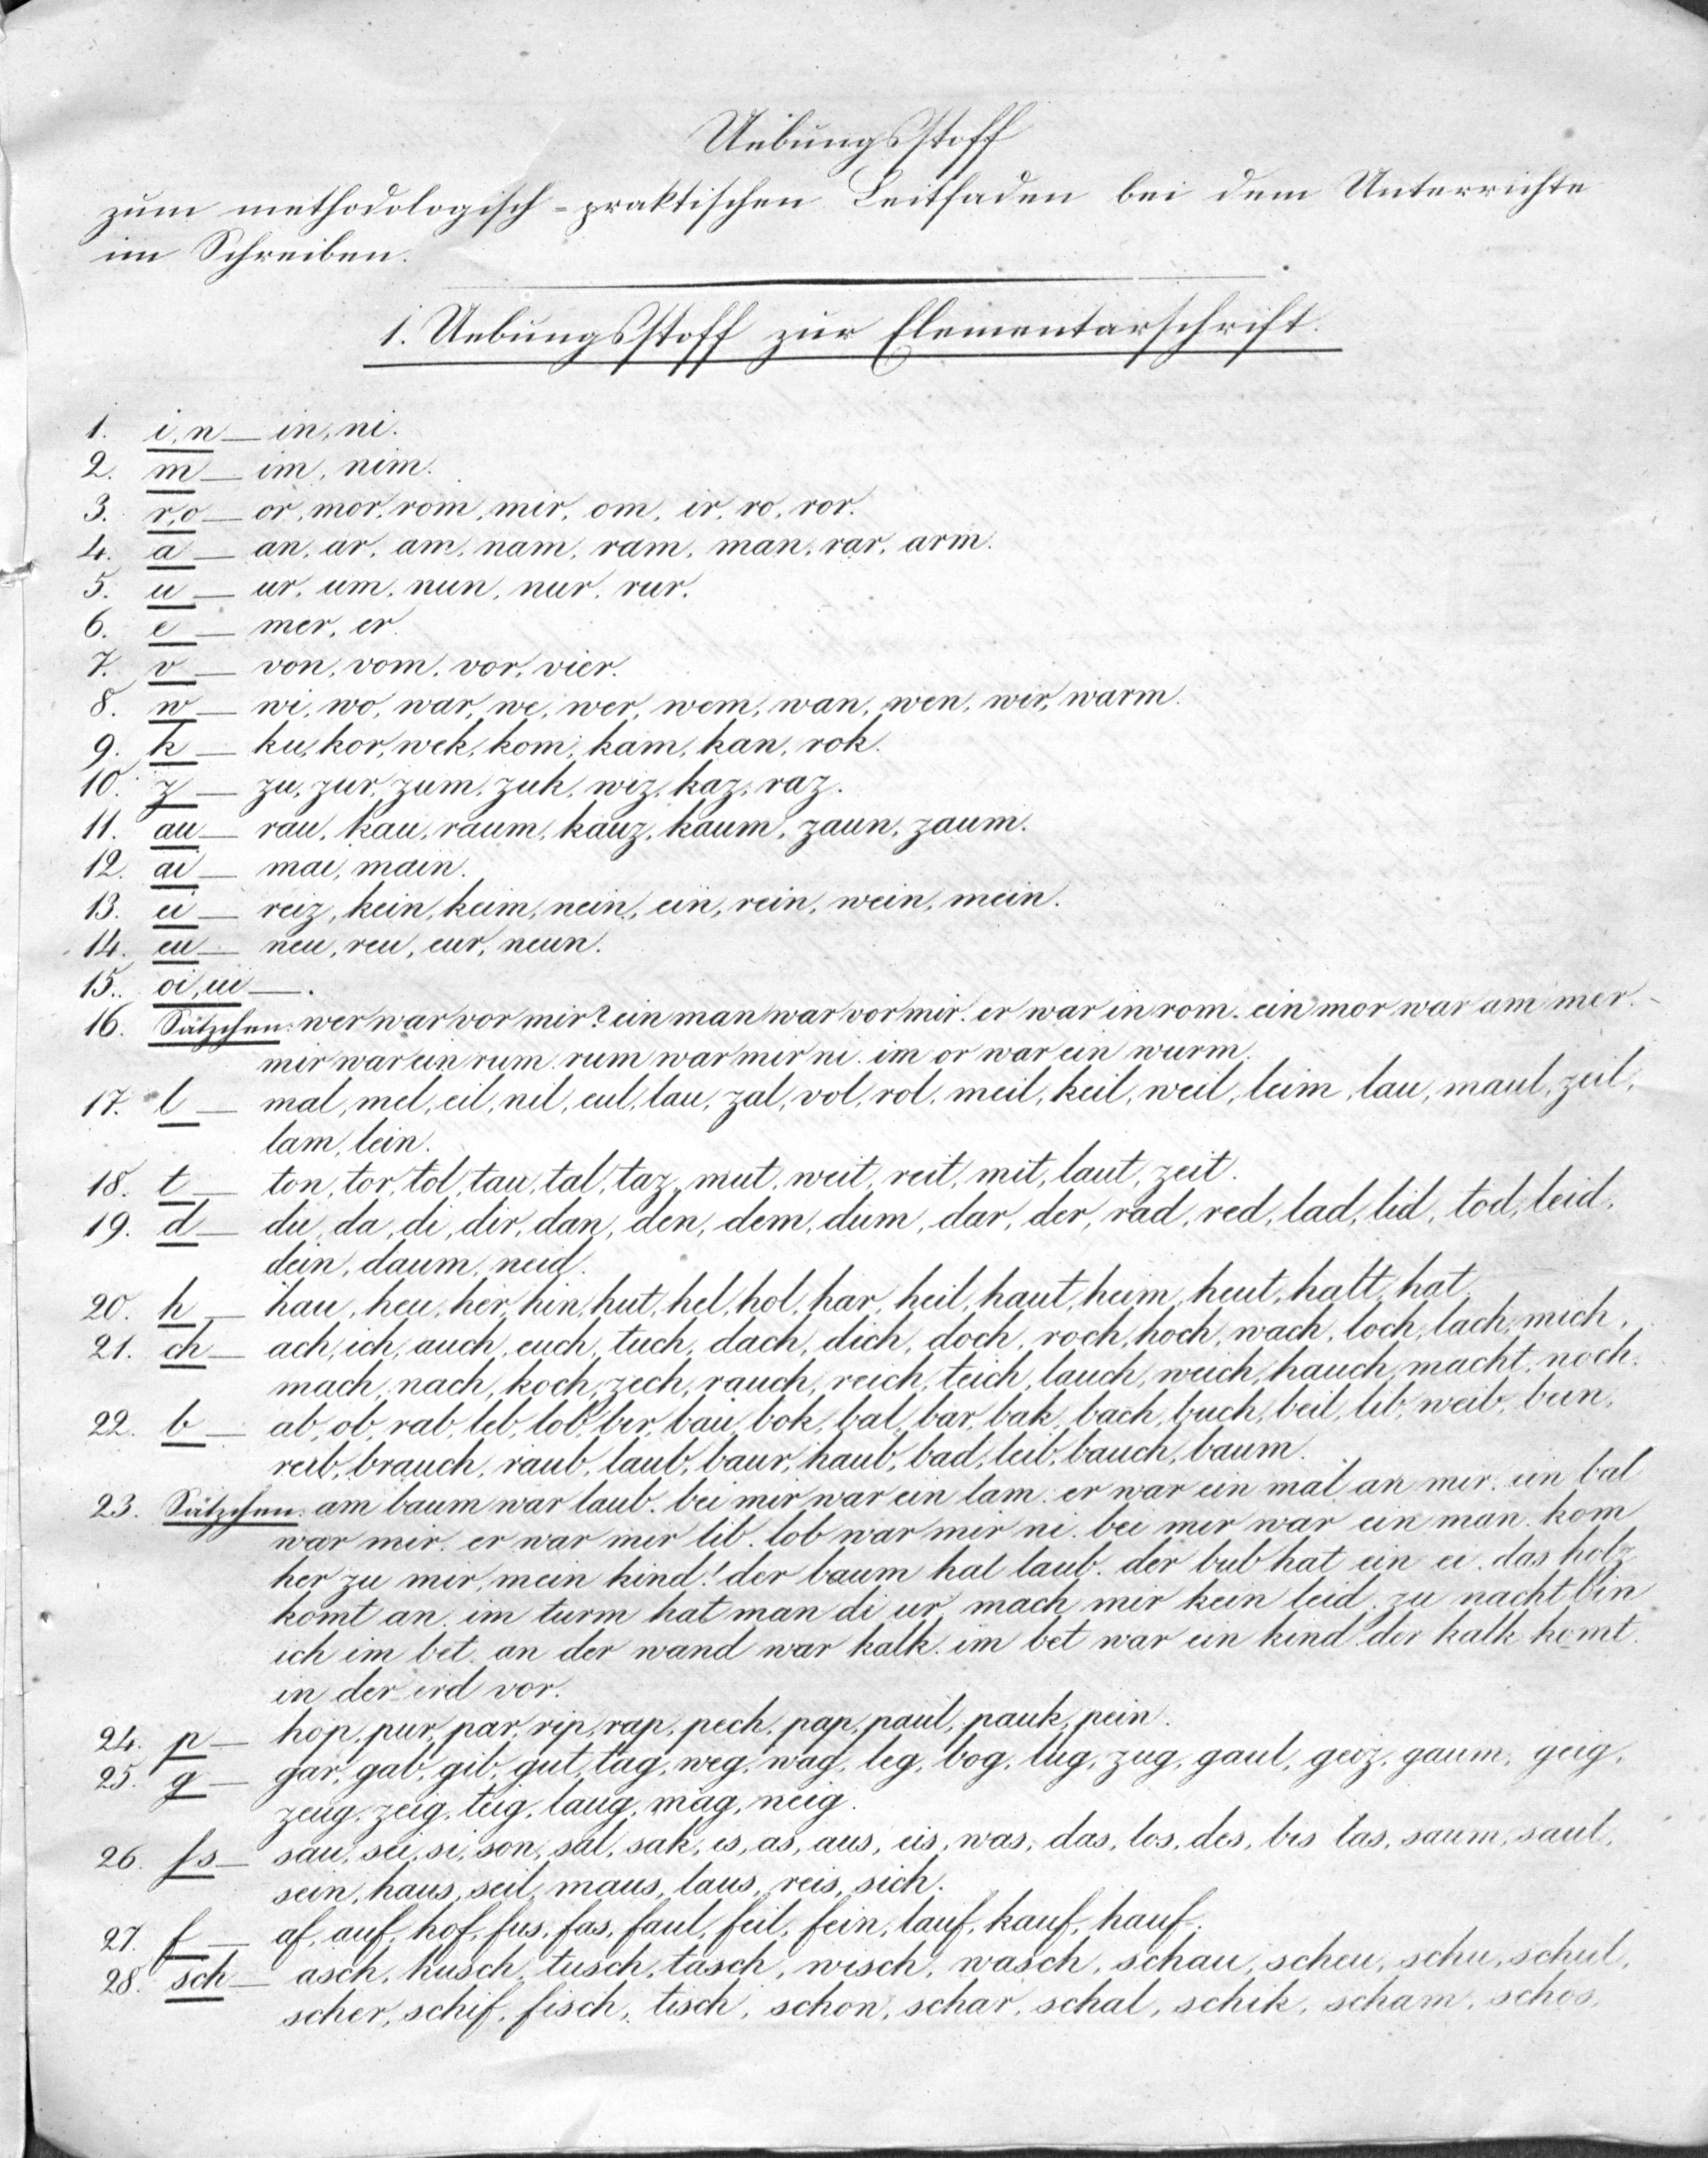 Uebungsstoff
zum methodologisch-praktischen Leitfaden bei dem Unterrichte
im Schreiben.
1. Uebungsstoff zur Elementarschrift.
1. i, n — in, ni.
2. m — im, nim.
3. r, o — or, mor, rom, mir, om, ir, ro, ror.
4. a — an, ar, am, nam, ram, man, rar, arm.
5. u — ur, um, nun, nur, rur.
6. e — mer, er.
7. v — von, vom, vor, vier.
8. w — wi, wo, war, we, wer, wem, wan, wen, wir, warm.
9. k — ku, kor, wek, kom, kam, kan, rok.
10. z — zu, zur, zum, zuk, wiz, kaz, raz.
11. au — rau, kau, raum, kauz, kaum, zaun, zaum.
12. ai — mai, main.
13. ei — reiz, kein, keim, nein, ein, rein, wein, mein.
14. eu — neu, reu, eur, neun.
15. oi, ui — .
16. Sätzchen: wer war vor mir? ein man war vor mir. er war in rom. ein mor war am mer.
mir war ein rum. rum war mir ni. im or war ein wurm.
17. l — mal, mel, eil, nil, eul, lau, zal, vol, rol, meil, keil, weil, leim, lau, maul, zeil,
lam, lein.
18. t — ton, tor, tol, tau, tal, taz, mut, weit, reit, mit, laut, zeit.
19. d — du, da, di, dir, dan, den, dem, dum, dar, der, rad, red, lad, lid, tod, leid,
dein, daum, neid.
20. h — hau, heu, her, hin, hut, hel, hol, har, heil, haut, heim, heut, halt, hat.
21. ch — ach, ich, auch, euch, tuch, dach, dich, doch, roch, hoch, wach, loch, lach, mich,
mach, nach, koch, zech, rauch, reich, teich, lauch, weich, hauch, macht, noch.
22. b — ab, ob, rab, leb, lob, bir, bau, bok, bal, bar, bak, bach, buch, beil, lib, weib, bein,
reib, brauch, raub, laub, baur, haub, bad, leib, bauch, baum.
23. Sätzchen: am baum war laub. bei mir war ein lam. er war ein mal an mir. ein bal
war mir. er war mir lib. lob war mir ni. bei mir war ein man. kom
her zu mir, mein kind! der baum hat laub. der bub hat ein ei. das holz
komt an. im turm hat man di ur. mach mir kein leid. zu nacht bin
ich im bet. an der wand war kalk. im bet war ein kind. der kalk komt
in der erd vor.
24. p — hop, pur, par, rip, rap, pech, pap, paul, pauk, pein.
25. g — gar, gab, gib, gut, tag, weg, wag, leg, bog, lug, zug, gaul, geiz, gaum, geig,
zeug, zeig, teig, laug, mag, neig.
26. ſs — sau, sei, si, son, sal, sak, es, as, aus, eis, was, das, los, des, bis las, saum, saul,
sein, haus, seil, maus, laus, reis, sich.
27. f — af, auf, hof, fus, fas, faul, feil, fein, lauf, kauf, hauf.
28. sch — asch, kusch, tusch, tasch, wisch, wasch, schau, scheu, schu, schul,
scher, schif, fisch, tisch, schon, schar, schal, schik, scham, schos,